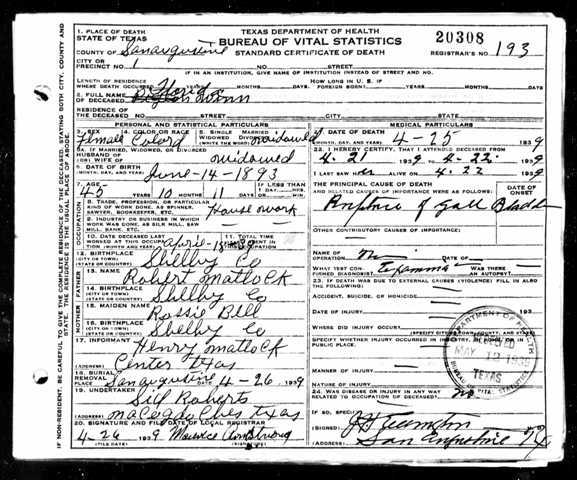 1. PLACE OF DEATH
STATE OF TEXAS
TEXAS DEPARTMENT OF HEALTH
BUREAU OF VITAL STATISTICS
STANDARD CERTIFICATE OF DEATH
20308
COUNTY OF San Augustine
REGISTRAR'S NO. 193
CITY OR PRECINCT NO. 1 NO. STREET
IF IN AN INSTITUTION, GIVE NAME OF INSTITUTION INSTEAD OF STREET AND NO.
LENGTH OF RESIDENCE
WHERE DEATH OCCURRED YEARS MONTHS DAYS
HOW LONG IN U. S. IF
FOREIGN BORN? YEARS MONTHS DAYS
2. FULL NAME
OF DECEASED
RESIDENCE OF
THE DECEASED NO. STREET CITY STATE
PERSONAL AND STATISTICAL PARTICULARS
3. SEX
Female
4. COLOR OR RACE
Colord
5. SINGLE MARRIED
WIDOWED DIVORCED
(WRITE THE WORD) widowed
5A. IF MARRIED, WIDOWED, OR DIVORCED
HUSBAND OF
(OR) WIFE OF widowed
6. DATE OF BIRTH
(MONTH, DAY, AND YEAR) June-14-1893
7. AGE
45 YEARS 10 MONTHS 11 DAYS
IF LESS THAN
1 DAY, HRS.
MINUTES
OCCUPATION
8. TRADE, PROFESSION, OR PARTICULAR
KIND OF WORK DONE, AS SPINNER,
SAWYER, BOOKKEEPER, ETC. House work
9. INDUSTRY OR BUSINESS IN WHICH
WORK WAS DONE, AS SILK MILL, SAW
MILL, BANK, ETC.
10. DATE DECEASED LAST
WORKED AT THIS OCCUPATION
(MONTH AND YEAR) april-
11. TOTAL TIME
SPENT IN THIS
OCCUPATION
12. BIRTHPLACE
(CITY OR TOWN)
(STATE OR COUNTRY) Shelby Co
FATHER
13. NAME Robert Matlock
14. BIRTHPLACE
(CITY OR TOWN)
(STATE OR COUNTRY) Shelby Co
MOTHER
15. MAIDEN NAME Rossie Bell
16. BIRTHPLACE
(CITY OR TOWN)
(STATE OR COUNTRY) Shelby Co
17. INFORMANT Henry Matlock
(ADDRESS) Center Texas
18. BURIAL
REMOVAL
PLACE San augustine DATE 4-26 1939
19. UNDERTAKER Roberts
(ADDRESS) Texas
20. SIGNATURE AND FILE DATE OF LOCAL REGISTRAR
4-26 1939 Maurice Armstrong
(FILE DATE) (SIGNATURE)
MEDICAL PARTICULARS
21. DATE OF DEATH
(MONTH, DAY, AND YEAR) 4-25 1939
22. I HEREBY CERTIFY, THAT I ATTENDED DECEASED FROM
4-21 1939 TO 4-22 1939
I LAST SAW ALIVE ON 4-22 1939
THE PRINCIPAL CAUSE OF DEATH
AND RELATED CAUSES OF IMPORTANCE WERE AS FOLLOWS:
DATE OF
ONSET
Rupture of Gall Bladder
OTHER CONTRIBUTORY CAUSES OF IMPORTANCE:
NAME OF
OPERATION DATE OF
WHAT TEST CONFIRMED DIAGNOSIS? WAS THERE
AN AUTOPSY?
23. IF DEATH WAS DUE TO EXTERNAL CAUSES (VIOLENCE) FILL IN ALSO
THE FOLLOWING:
ACCIDENT, SUICIDE, OR HOMICIDE
DATE OF INJURY 193
WHERE DID INJURY OCCUR?
(SPECIFY CITY OR TOWN, COUNTY, AND STATE)
SPECIFY WHETHER INJURY OCCURRED IN INDUSTRY, IN HOME, OR IN
PUBLIC PLACE.
MANNER OF INJURY
NATURE OF INJURY
24. WAS DISEASE OR INJURY IN ANY WAY
RELATED TO OCCUPATION OF DECEASED? no
IF SO, SPECIFY
(SIGNED)
(ADDRESS) San Augustine
DEPARTMENT OF HEALTH
RECEIVED
MAY 12 1939
TEXAS
BUREAU OF VITAL STATISTICS